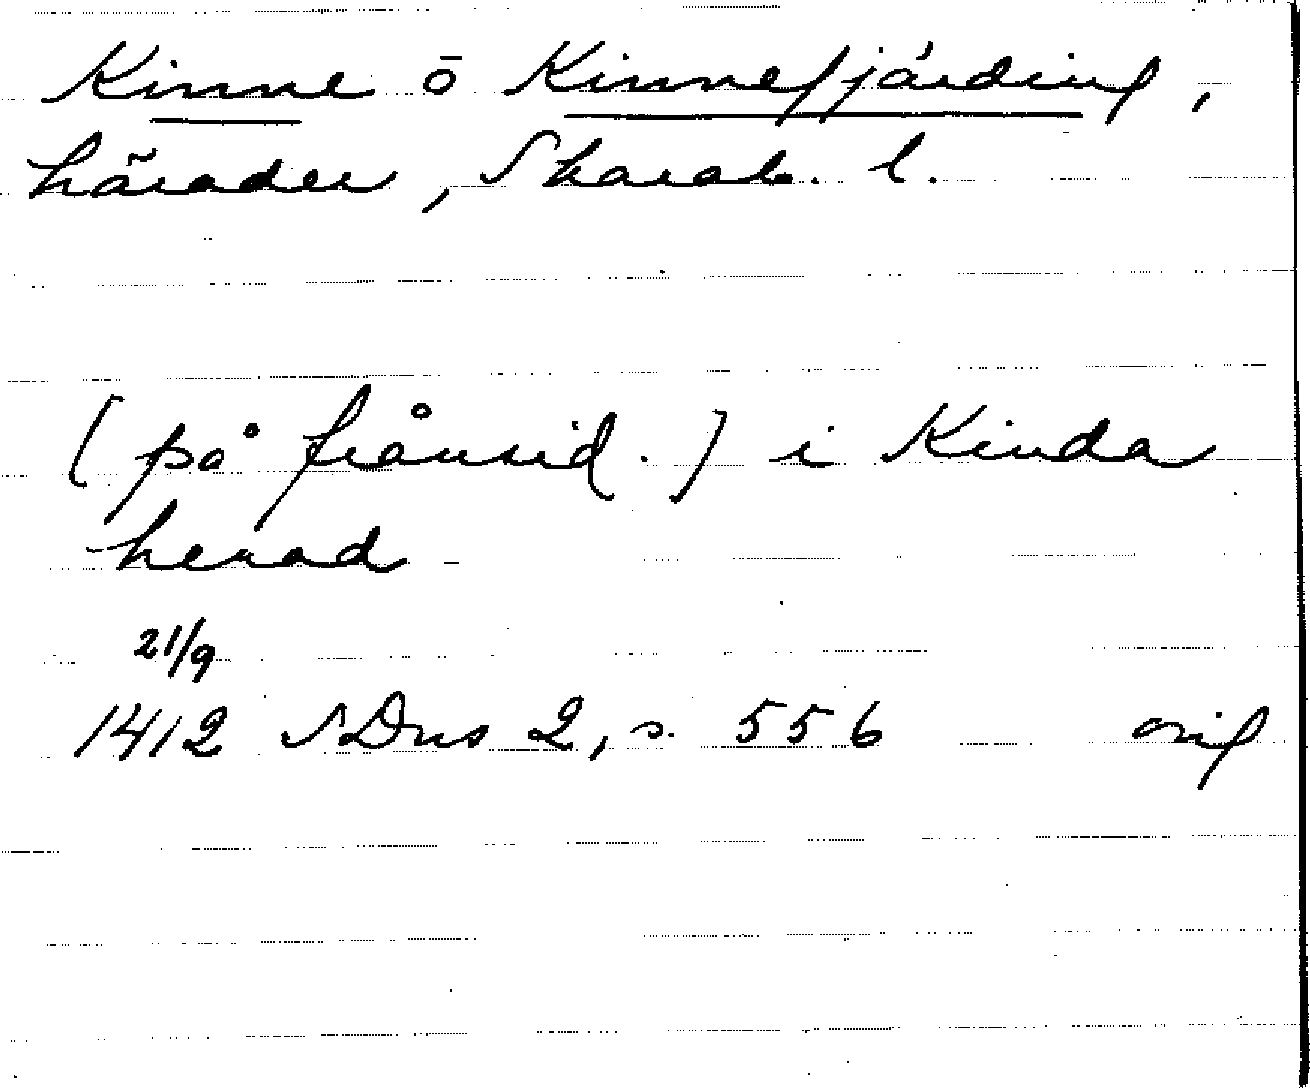 Kinne o Kinnefjärding,
härader, Skarab. l.
(på frånsid.) i Kinda
herad
21/9
1412 SDns 2, s. 556 orig